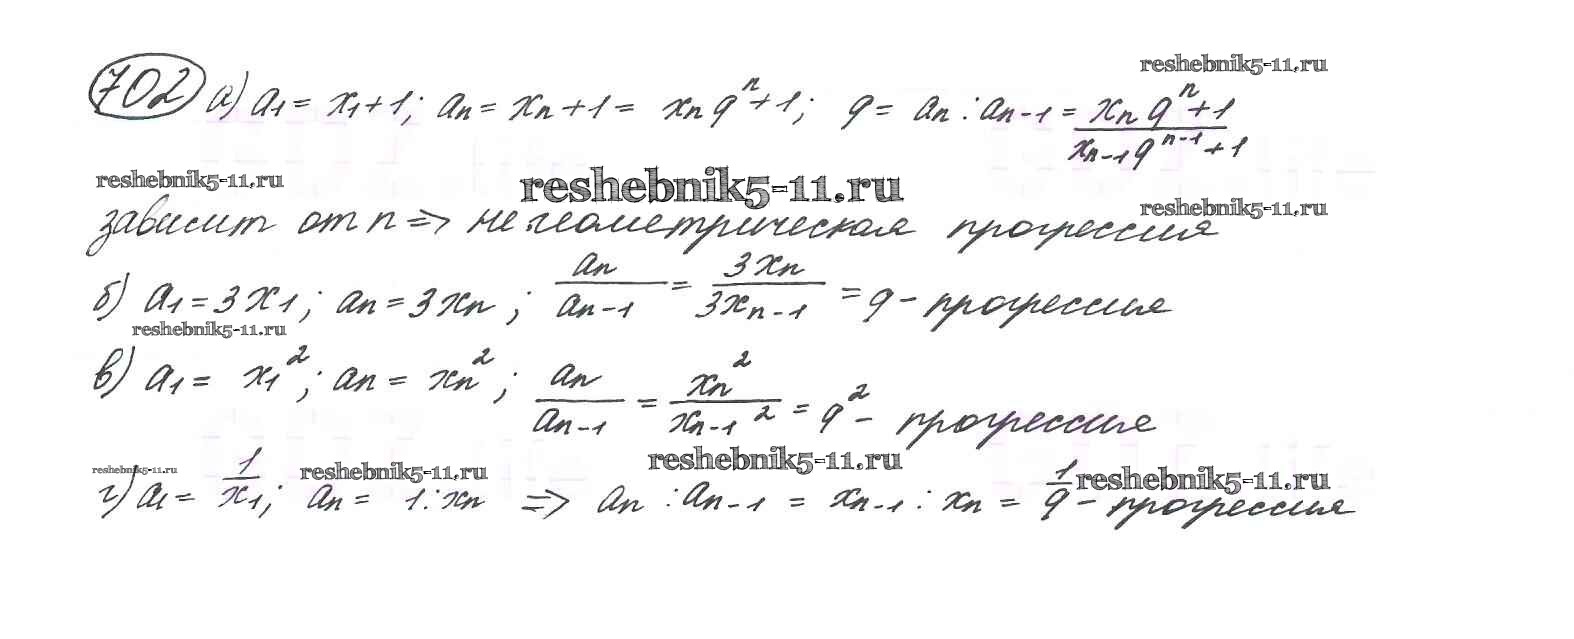 reshebnik5-11.ru
702 а) a₁ = x₁+1; aₙ = xₙ+1 = xₙqⁿ+1; q = aₙ : aₙ₋₁ = (xₙqⁿ+1)/(xₙ₋₁qⁿ⁻¹+1)
reshebnik5-11.ru reshebnik5-11.ru reshebnik5-11.ru
зависит от n ⇒ не геометрическая прогрессия
б) a₁ = 3x₁; aₙ = 3xₙ; aₙ/aₙ₋₁ = 3xₙ/3xₙ₋₁ = q - прогрессия
reshebnik5-11.ru
в) a₁ = x₁²; aₙ = xₙ²; aₙ/aₙ₋₁ = xₙ²/xₙ₋₁² = q² - прогрессия
reshebnik5-11.ru reshebnik5-11.ru reshebnik5-11.ru reshebnik5-11.ru
г) a₁ = 1/x₁; aₙ = 1:xₙ ⇒ aₙ : aₙ₋₁ = xₙ₋₁ : xₙ = 1/q - прогрессия